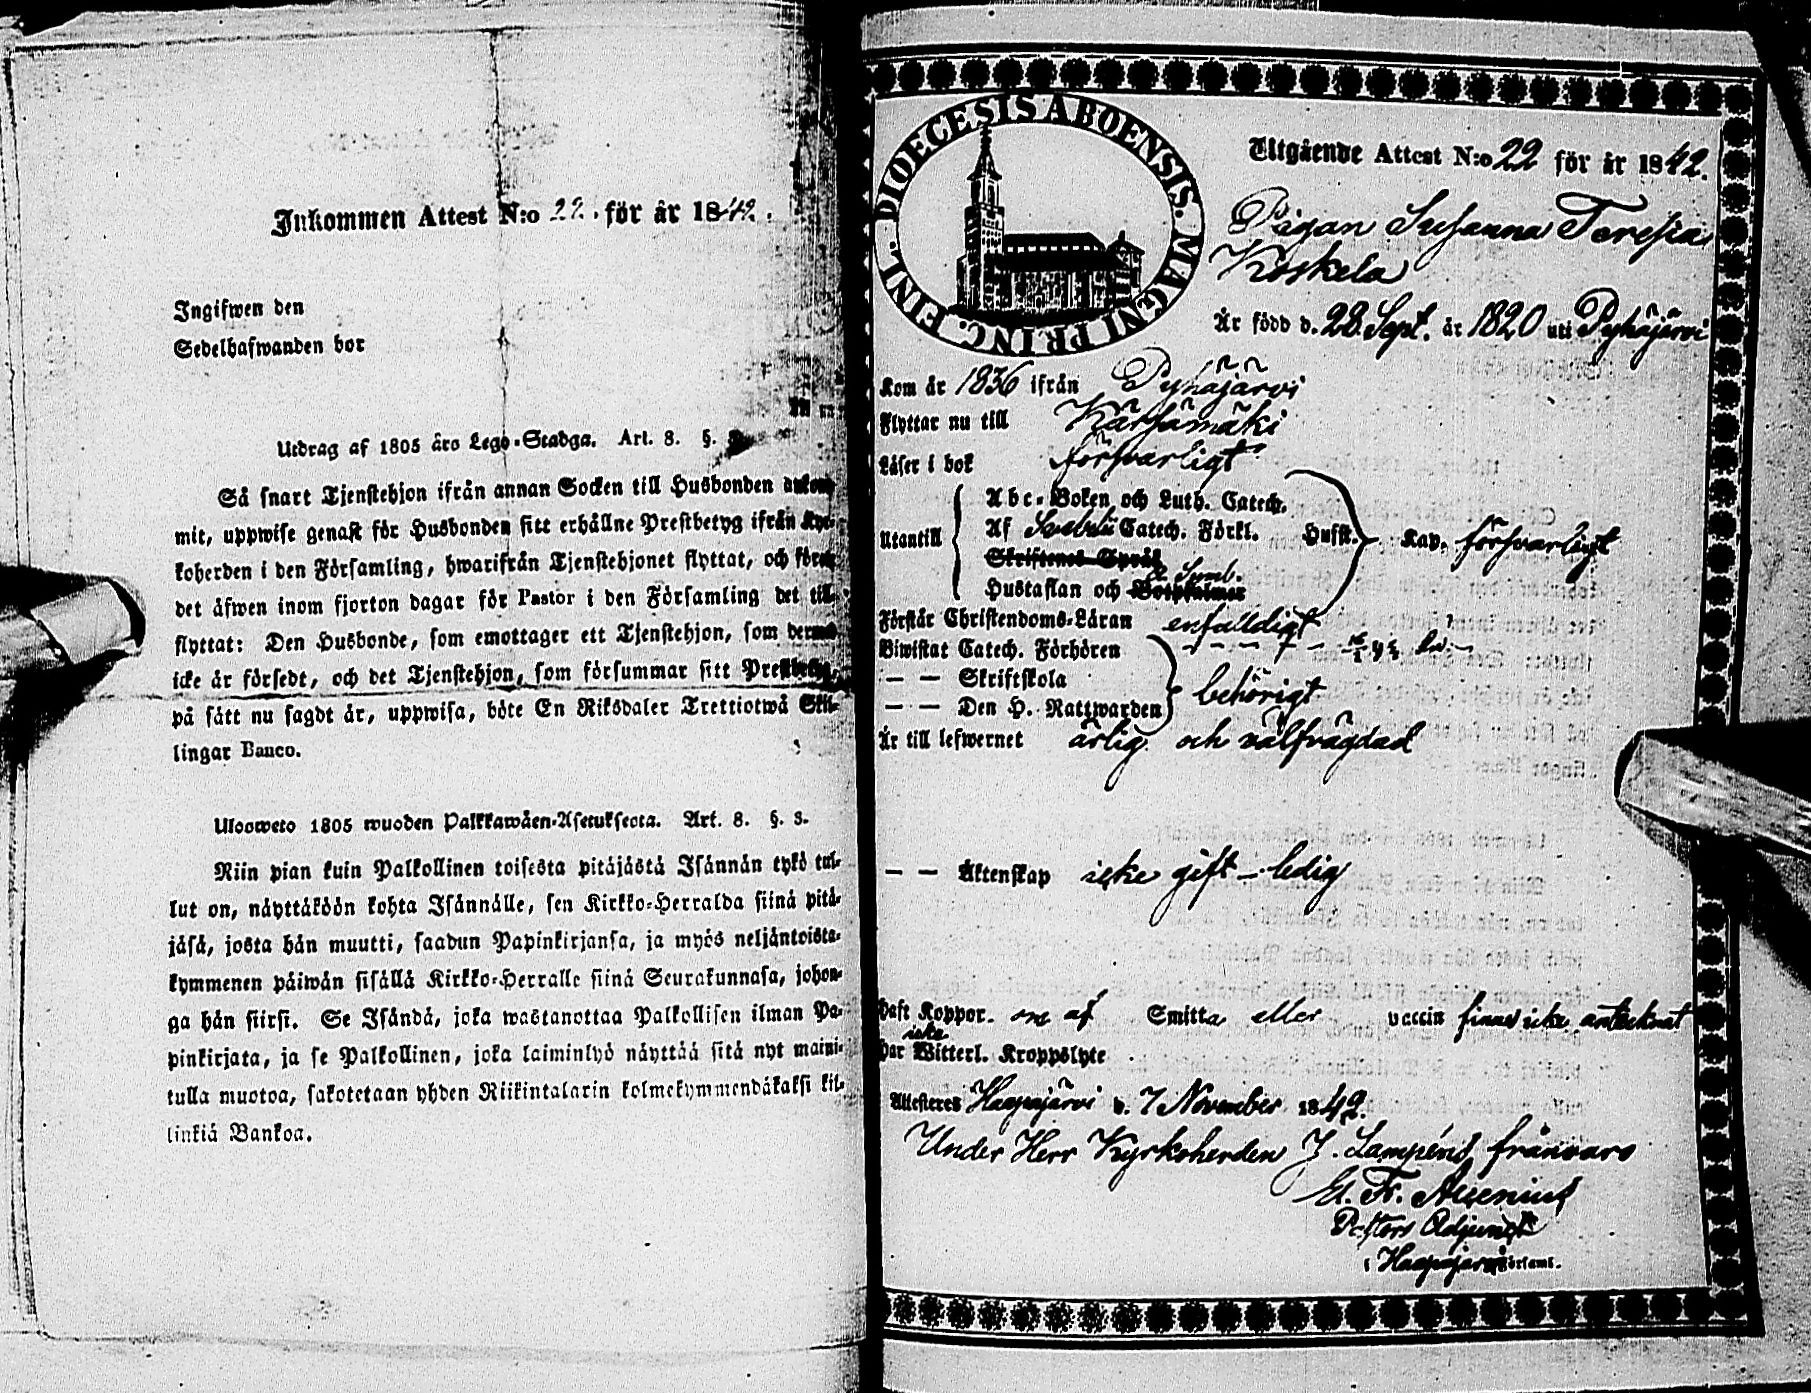 Inkommen Attest N:o 22. för år 1842.
Ingifwen den
Sedelhafwanden bor
Utdrag af 1805 åro Lego-Stadga. Art. 8. §.
Så snart Tjenstehjon ifrån annan Socken till Husbonden ankom-
mit, uppwise genast för Husbonden sitt erhållne Prestbetyg ifrån Kyr-
koherden i den Församling, hwarifrån Tjenstehjonet flyttat, och förete
det äfwen inom fjorton dagar för Pastor i den Församling det till-
flyttat: Den Husbonde, som emottager ett Tjenstehjon, som dermed
icke är försedt, och det Tjenstehjon, som försummar sitt Prestbetyg,
på sätt nu sagdt är, uppwisa, böte En Riksdaler Trettiotwå Skil-
lingar Banco.
Ulosweto 1805 wuoden Palkkawäen-Asetuksesta. Art. 8. §. 8.
Niin pian kuin Palkollinen toisesta pitäjästä Isännän tykö tul-
lut on, näyttäköön kohta Isännälle, sen Kirkko-Herralda siinä pitä-
jäsä, josta hän muutti, saadun Papinkirjansa, ja myös neljäntoista-
kymmenen päiwän sisällä Kirkko-Herralle siinä Seurakunnasa, johon-
ga hän siirsi. Se Isändä, joka wastanottaa Palkollisen ilman Pa-
pinkirjata, ja se Palkollinen, joka laiminlyö näyttää sitä nyt maini-
tulla muotoa, sakotetaan yhden Riikintalarin kolmekymmendäkaksi kil-
linkiä Bankoa.
DIOECESIS ABOENSIS. MAGNI PRINC. FINL.
Utgående Attest N:o 22 för år 1842.
Pigan Susanna Teresia
Koskela
Är född d. 28 Sept. år 1820 uti Pyhäjärvi
Kom år 1836 ifrån Pyhäjärvi
Flyttar nu till Kärsämäki
Läser i bok försvarligt
Utantill
Abc-Boken och Luth. Catech.
Af Svebelii Catech. Förkl. Husft. Kap. försvarligt
Skriftenes Språk
Hustaflan och Botpsalmer A. Symb.
Förstår Christendoms-Läran enfaldigt
Biwistat Catech. Förhören
— — Skriftskola
— — Den H. Nattwarden behörigt
Är till lefwernet ärlig och välfrägdad
— — Äktenskap icke gift — ledig
Haft Koppor. om af Smitta eller vaccin finns icke antecknat
Har icke Witterl. Kroppslyte
Attesteres Haapajärvi d. 7 November 1842.
Under Herr Kyrkoherden J. Lampéns frånvaro
Pastors Adjunct
i Haapajärvi Församl.